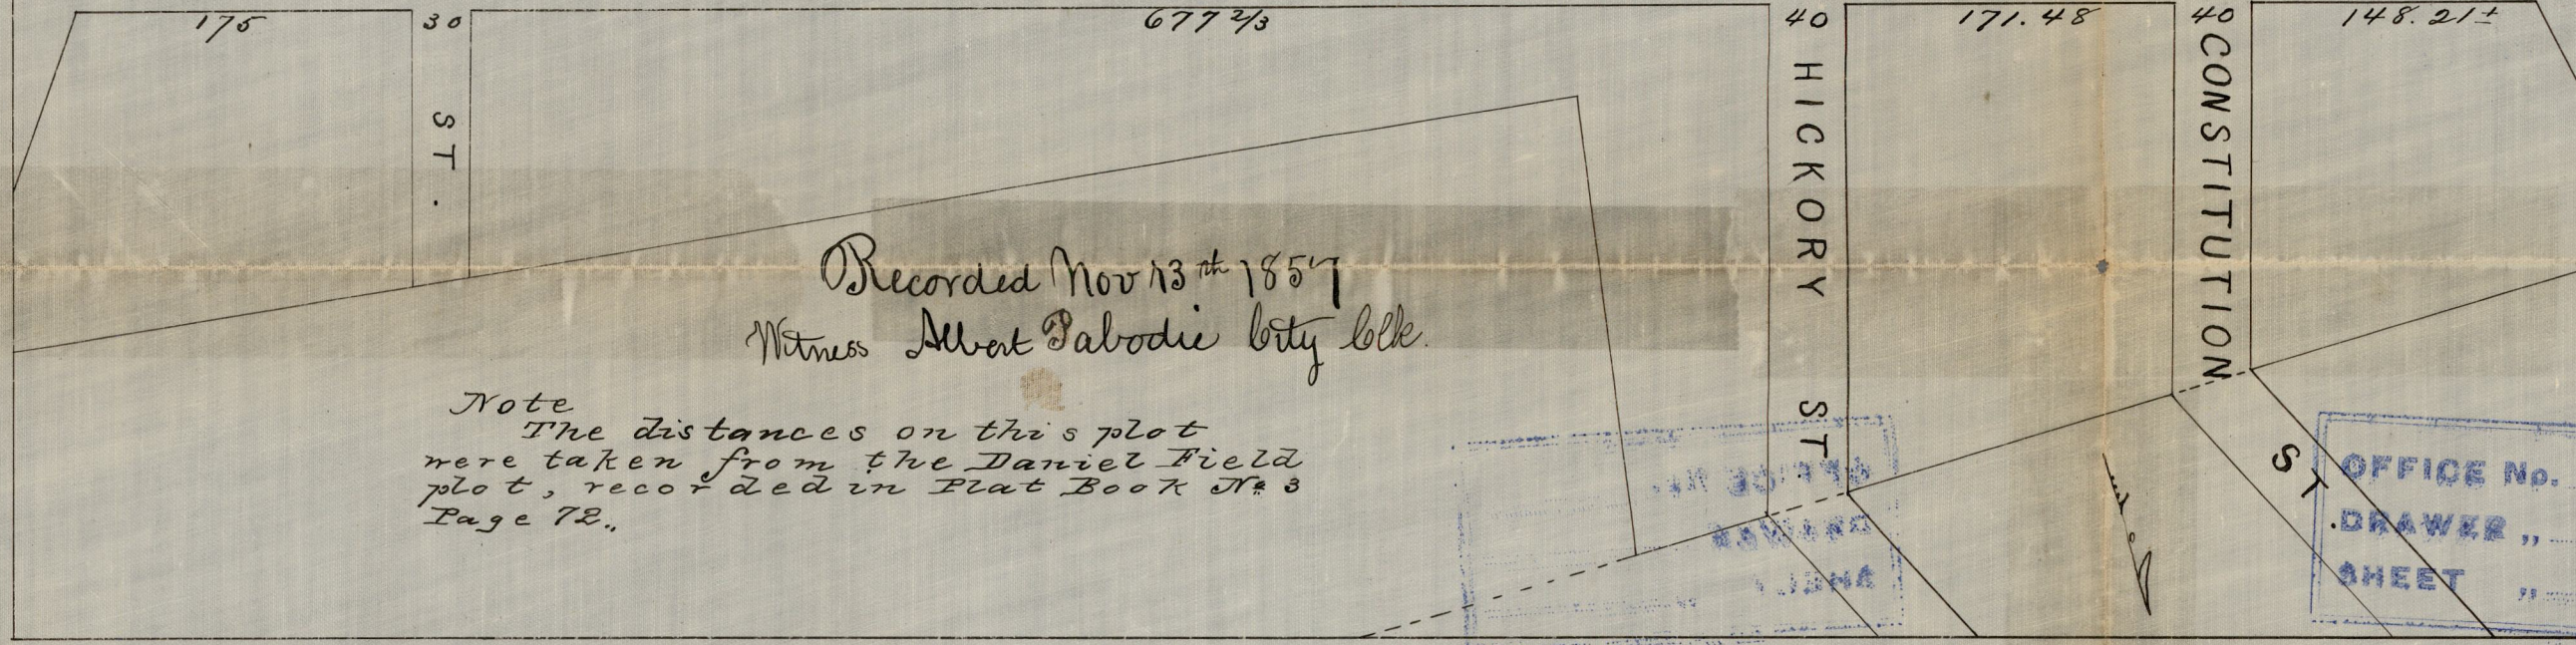 175
30
677 2/3
40
171.48
40
148.21±
ST.
HICKORY ST.
CONSTITUTION ST.
Recorded Nov 13th 1857
Witness Albert Pabodie City Clk.
Note
The distances on this plot
were taken from the Daniel Field
plot, recorded in Plat Book No 3
Page 72.,
OFFICE No.
DRAWER „
SHEET „
OFFICE No.
DRAWER
SHEET